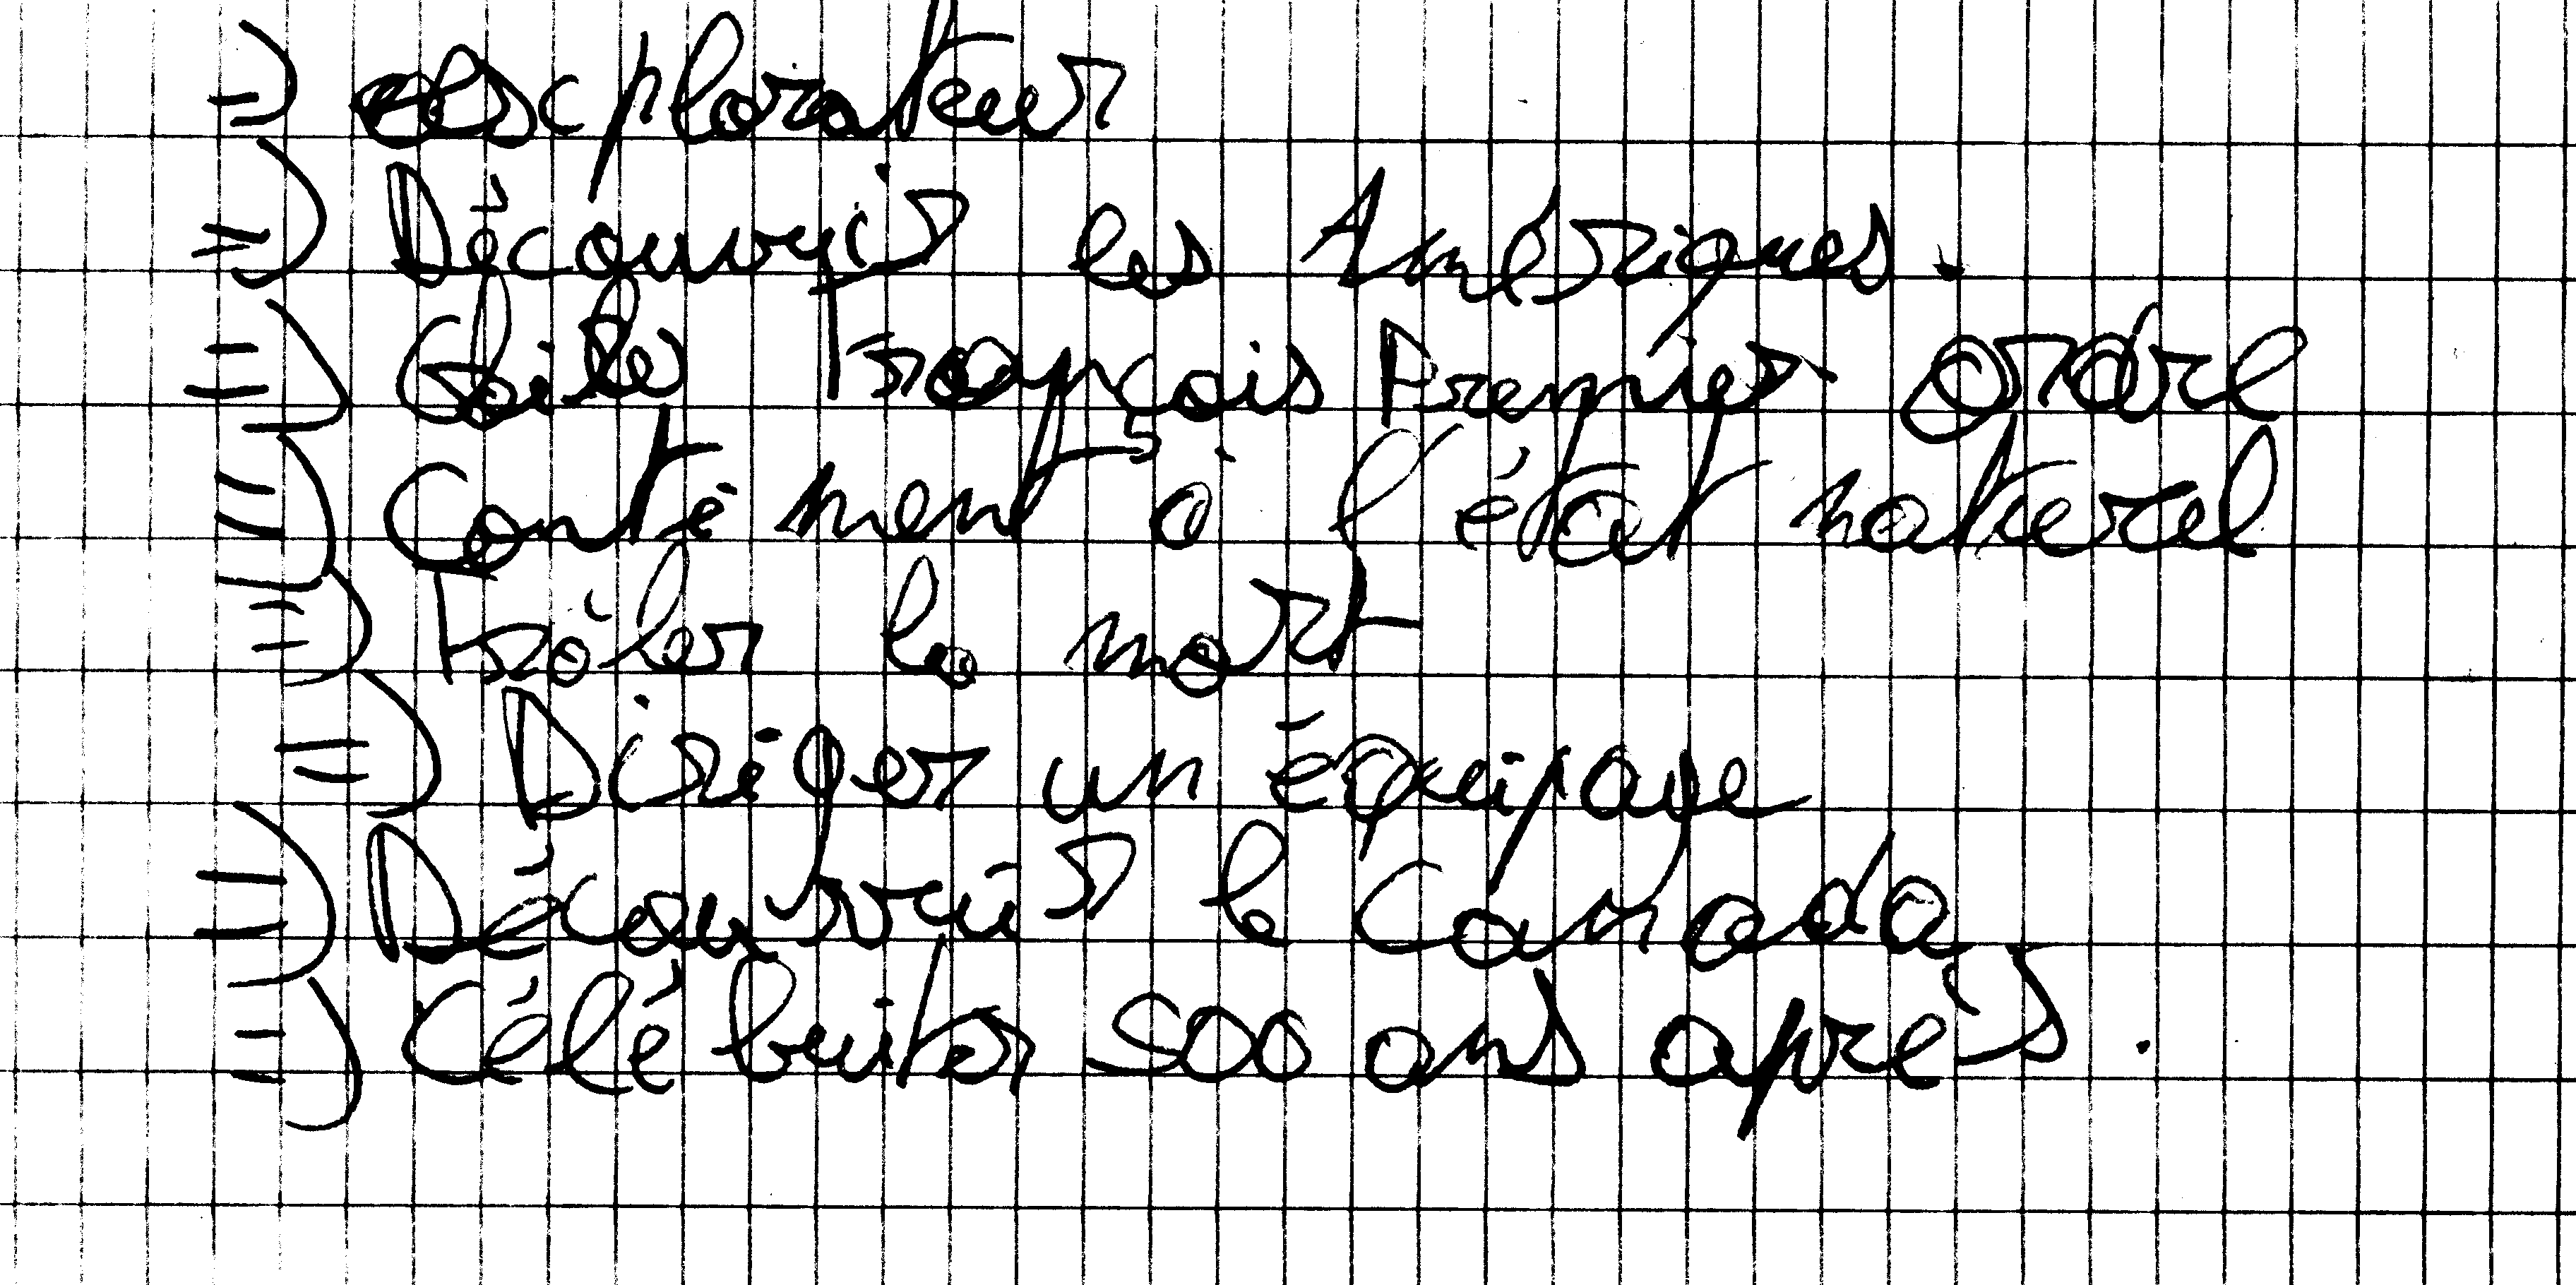 =) explorateur
=) Découvrir les Amériques.
=) François Premier ordre
=) Contément à l'état naturel
=) Frôler la mort
=) Diriger un équipage
=) Découvrir le Canada
=) Célébrités 500 ans après.